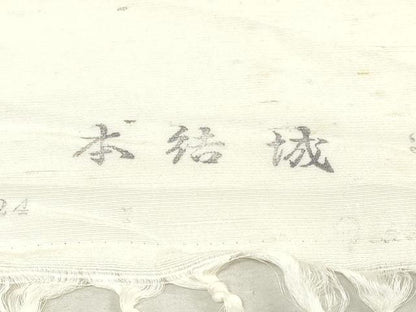 本結城
24